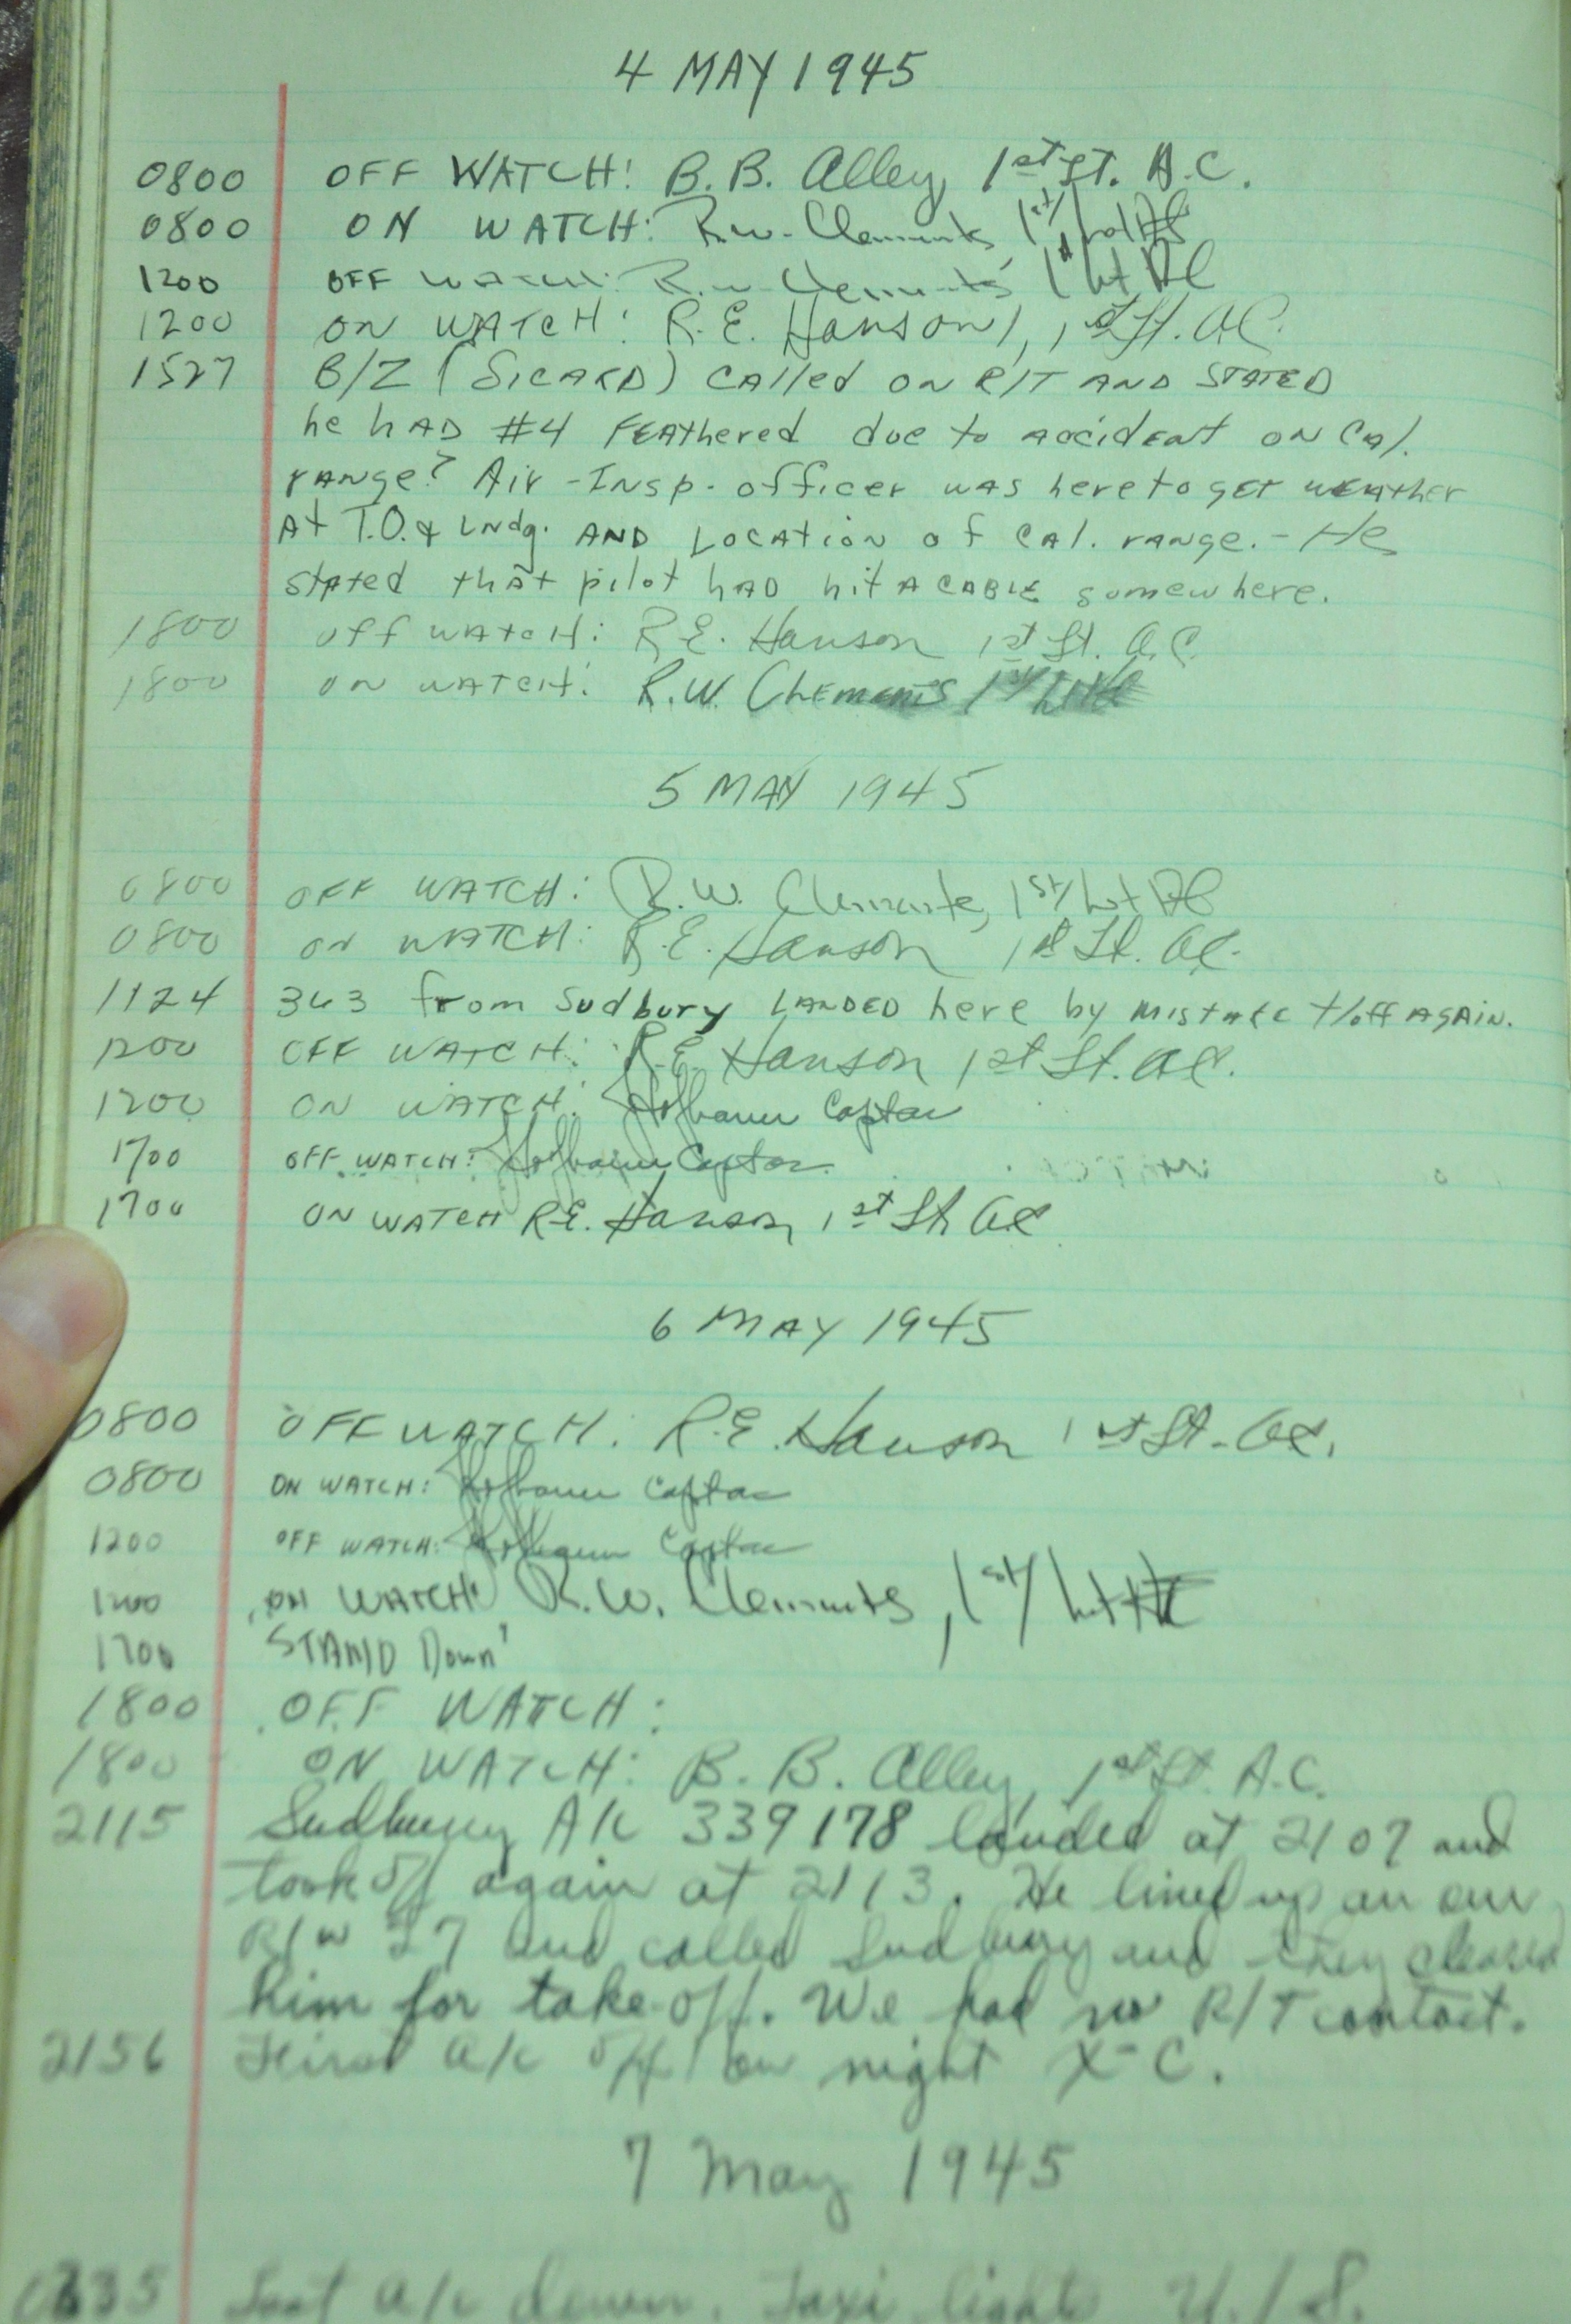 4 MAY 1945
0800 OFF WATCH: B.B. Alley, 1st Lt. A.C.
0800 ON WATCH: R.W. Clements, 1st/Lt AC
1200 OFF WATCH: R.W. Clements 1st Lt AC
1200 ON WATCH: R.E. Hanson, 1st Lt. AC.
1527 B/Z (SICARD) CAlled ON R/T AND STATED
he hAD #4 FEAthered due to accidEnt ON CAl.
rANge? Air-Insp. officer was here to get weather
At T.O. & Lndg. AND LOCATION of CAl. rANge. - He
stated that pilot hAD hit A CABLE somewhere.
1800 off WAtcH: R.E. Hanson 1st Lt. A.C.
1800 ON WATCH: R.W. Clements 1st/Lt AC
5 MAY 1945
0800 OFF WATCH: R.W. Clements, 1st/Lt AC
0800 ON WATCH: R.E. Hanson 1st Lt. AC.
1124 363 from Sudbury LANDED here by mistake t/off AgAIN.
1200 OFF WATCH: R.E. Hanson 1st Lt. AC.
1200 ON WATCH: Captac
1700 OFF WATCH: Captac
1700 ON WATCH R.E. Hanson, 1st Lt AC
6 MAY 1945
0800 OFF WATCH: R.E. Hanson 1st Lt. AC.
0800 ON WATCH: Captac
1200 OFF WATCH: Captac
1200 ON WATCH: R.W. Clements, 1st/Lt AC
1700 STAND Down
1800 OFF WATCH:
1800 ON WATCH: B.B. Alley, 1st Lt. A.C.
2115 Sudbury A/c 339178 landed at 2107 and
took off again at 2113. He lined up on our
R/W 27 and called Sudbury and they cleared
him for take-off. We had no R/T contact.
2156 First a/c off on night X-C.
7 May 1945
0335 Last a/c down. Taxi lights U/S.